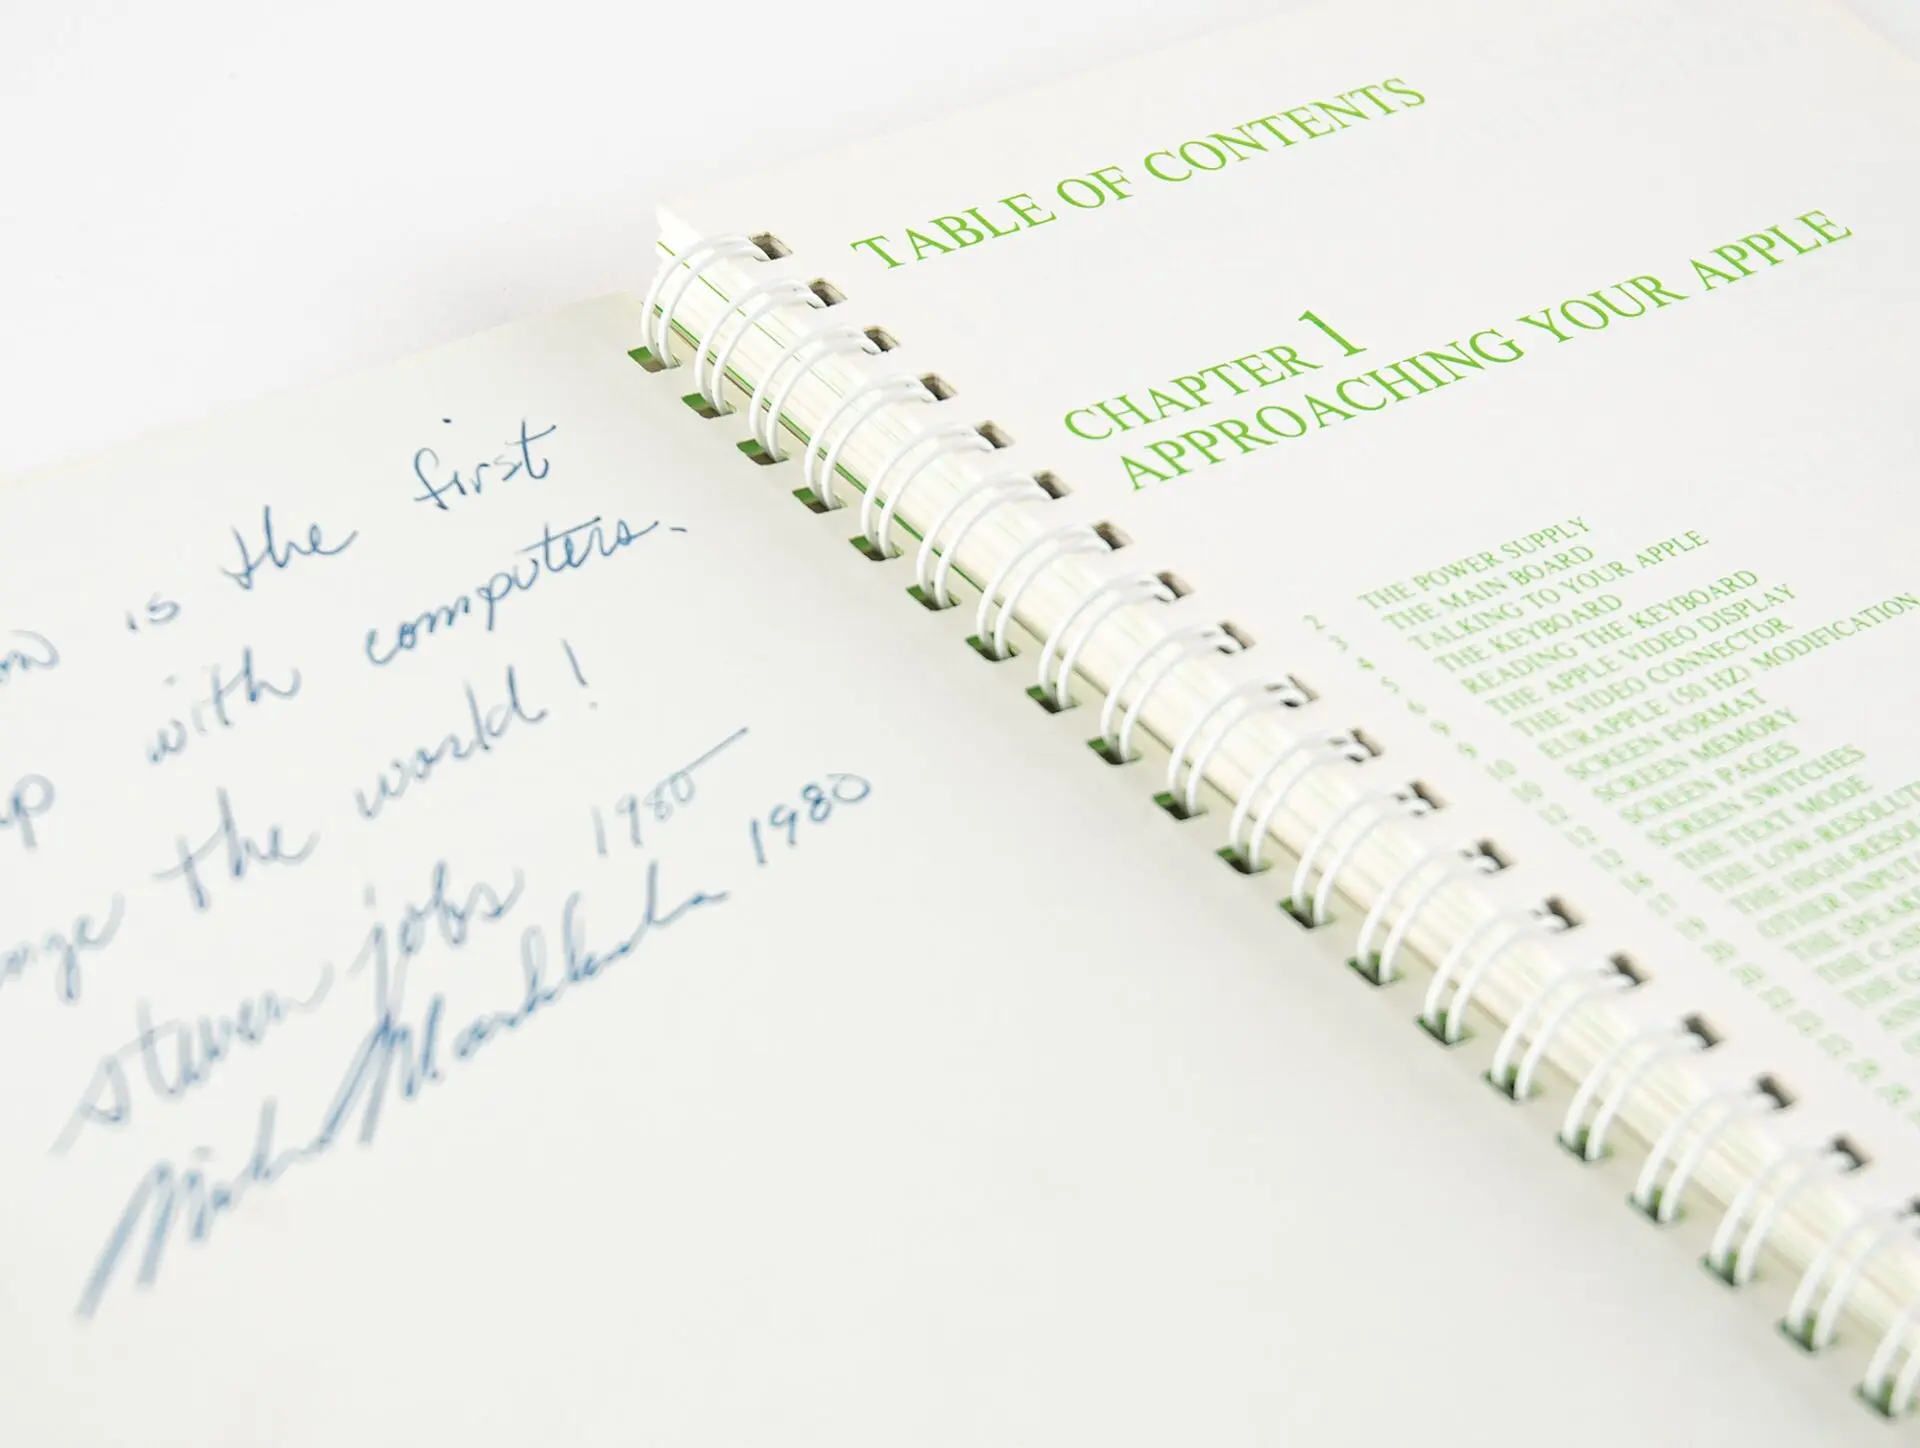 is the first
with computers.
the world!
steven jobs 1980
1980
TABLE OF CONTENTS
CHAPTER 1
APPROACHING YOUR APPLE
2 THE POWER SUPPLY
3 THE MAIN BOARD
4 TALKING TO YOUR APPLE
5 THE KEYBOARD
6 READING THE KEYBOARD
9 THE APPLE VIDEO DISPLAY
9 THE VIDEO CONNECTOR
10 EURAPPLE (50 HZ) MODIFICATION
10 SCREEN FORMAT
12 SCREEN MEMORY
12 SCREEN PAGES
12 SCREEN SWITCHES
14 THE TEXT MODE
17 THE LOW-RESOLUT
19 THE HIGH-RESOL
20 OTHER INPUT/
20 THE SPEAK